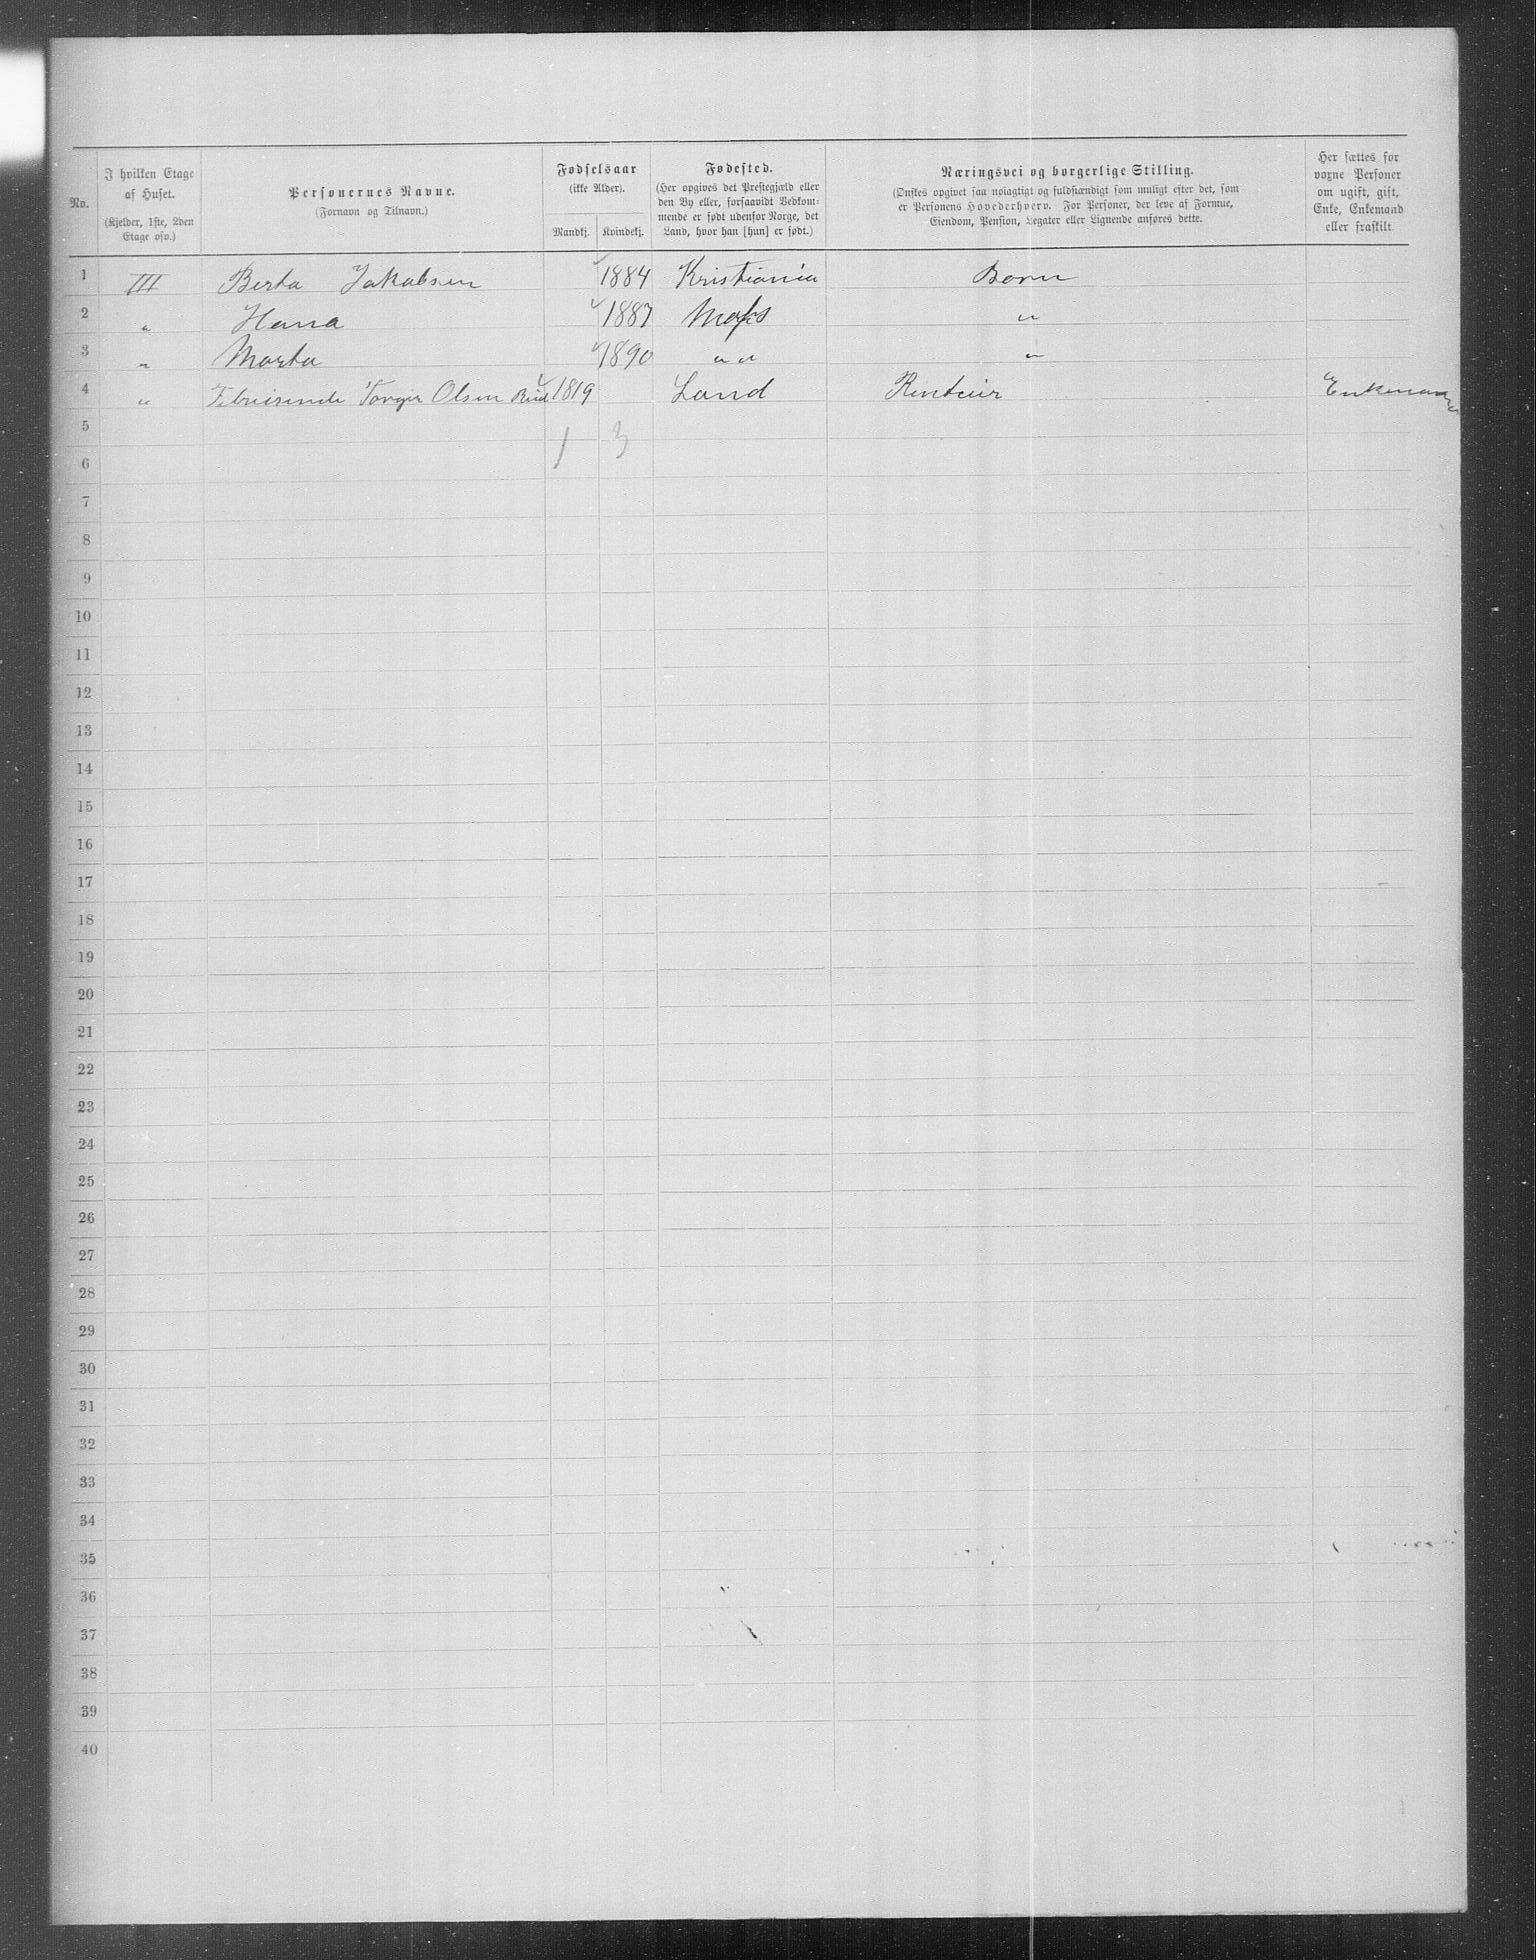 No.
I hvilken Etage
af Huset.
(Kjelder, 1ste, 2den
Etage osv.)
Personernes Navne.
(Fornavn og Tilnavn.)
Fødselsaar
(ikke Alder).
Mandkj. Kvindekj.
Fødested.
(Her opgives det Prestegjæld eller
den By eller, forsaavidt Vedkom-
mende er født udenfor Norge, det
Land, hvor han [hun] er født.)
Næringsvei og borgerlige Stilling.
(Ønskes opgivet saa nøiagtigt og fuldstændigt som muligt efter det, som
er Personens Hovederhverv. For Personer, der leve af Formue,
Eiendom, Pension, Legater eller Lignende anføres dette.
Her sættes for
voxne Personer
om ugift, gift,
Enke, Enkemand
eller fraskilt
1 III Berta Jakobsen 1884 Kristiania Barn
2 " Hana 1887 Moss "
3 " Marta 1890 " " "
4 " Torger Olsen 1819 Land Renteier Enkemand
5
1 3
6
7
8
9
10
11
12
13
14
15
16
17
18
19
20
21
22
23
24
25
26
27
28
29
30
31
32
33
34
35
36
37
38
39
40